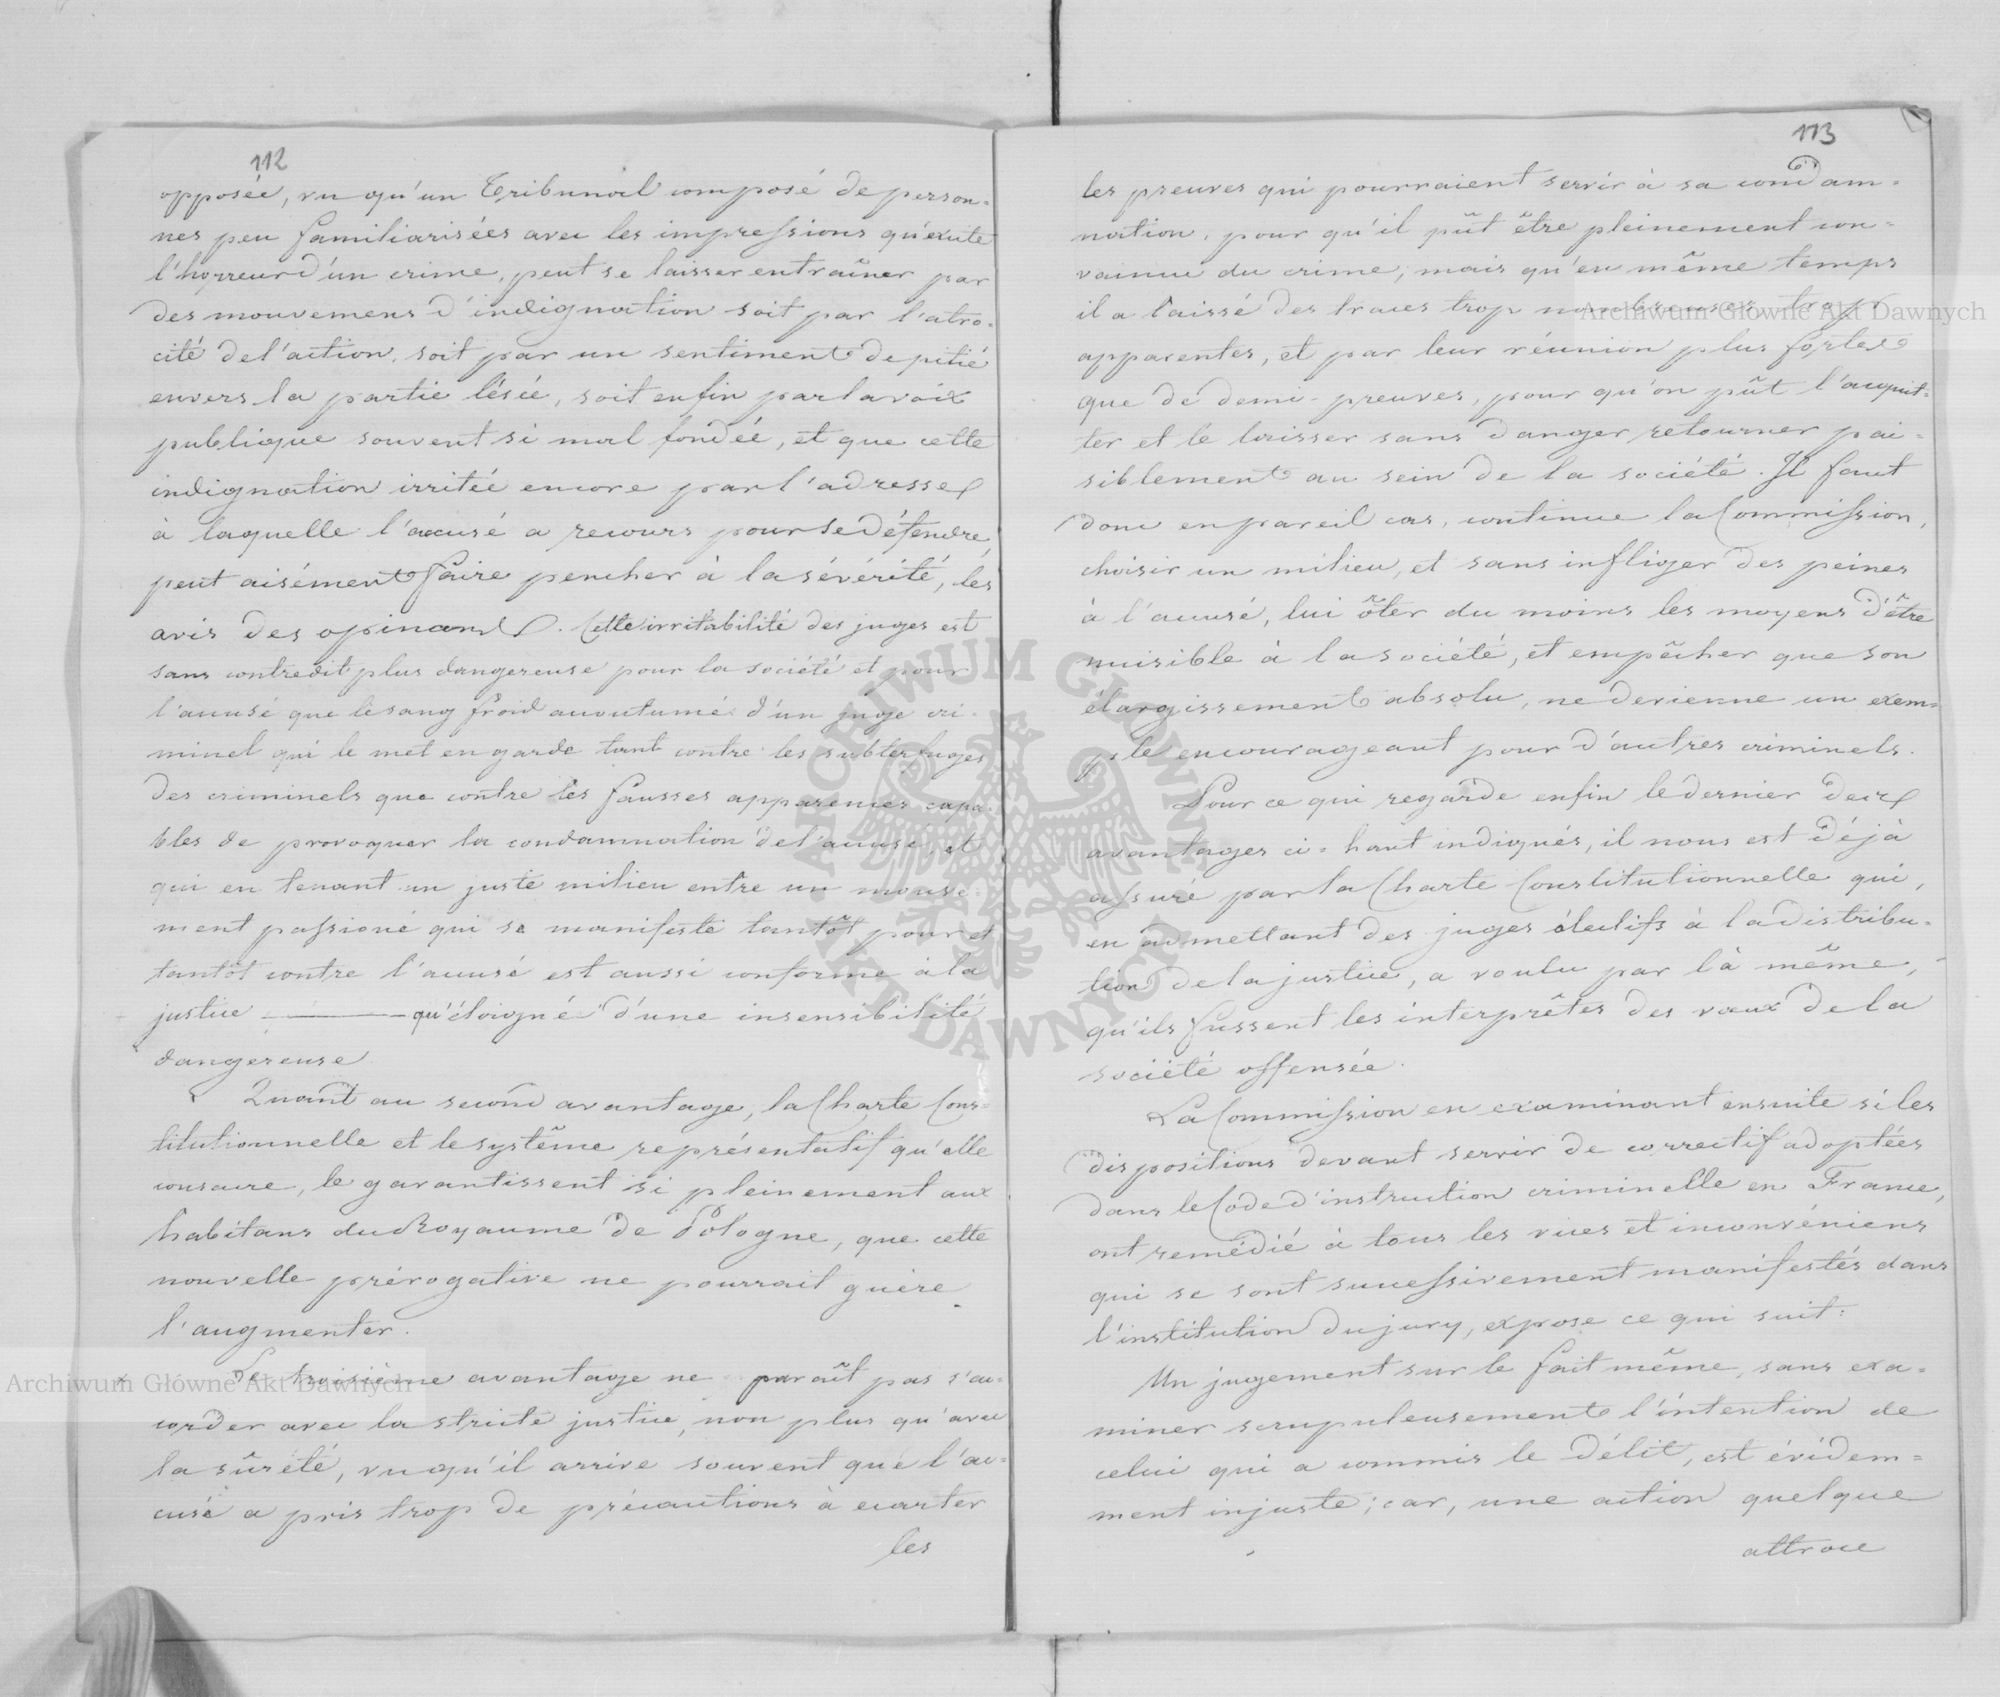 112
opposée, vu qu'un Tribunal composé de person=
nes peu familiarisées avec les impressions qu'excite
l'horreur d'un crime, peut se laisser entraîner par
des mouvemens d'indignation soit par l'atro-
cité de l'action, soit par un sentiment de pitié
envers la partie lésée, soit enfin par la voix
publique souvent si mal fondée, et que cette
indignation irritée encore par l'adresse
à laquelle l'accusé a recours pour se défendre,
peut aisément faire pencher à la sévérité, les
avis des opinans. Cette irritabilité des juges est
sans contredit plus dangereuse pour la société et pour
l'accusé que le sang froid accoutumé d'un juge cri-
minel qui le met en garde tant contre les subterfuges
des criminels que contre les fausses apparences capa-
bles de provoquer la condamnation de l'accusé, et
qui en tenant un juste milieu entre un mouve-
ment passioné qui se manifeste tantôt pour et
tantôt contre l'accusé est aussi conforme à la
justice ——— qu'éloigné d'une insensibilité
dangereuse
Quant au second avantage, la Charte Cons=
titutionnelle et le système représentatif qu'elle
consacre, le garantissent si pleinement aux
habitans du Royaume de Pologne, que cette
nouvelle prérogative ne pourrait guère
l'augmenter.
Le troisième avantage ne paraît pas s'ac-
corder avec la stricte justice, non plus qu'avec
la sûreté, vu qu'il arrive souvent que l'ac-
cusé a pris trop de précautions à écarter
les
113
les preuves qui pourraient servir à sa condam-
nation, pour qu'il pût être pleinement con-
vaincu du crime; mais qu'en même temps
il a laissé des traces trop nombreuses, trop
apparentes, et par leur réunion plus fortes
que de demi-preuves, pour qu'on pût l'acquit-
ter et le laisser sans danger retourner pai-
siblement au sein de la société. Il faut
donc en pareil cas, continue la Commission,
choisir un milieu, et sans infliger des peines
à l'accusé, lui ôter du moins les moyens d'être
nuisible à la société, et empêcher que son
élargissement absolu, ne devienne un exem-
ple encourageant pour d'autres criminels.
Pour ce qui regarde enfin le dernier des
avantages ci=haut indiqués, il nous est déjà
assuré par la Charte Constitutionnelle qui,
en admettant des juges électifs à la distribu-
tion de la justice, a voulu par là même,
qu'ils fussent les interprêtes des vœux de la
société offensée.
La Commission en examinant ensuite si les
dispositions devant servir de correctif adoptées
dans le Code d'instruction criminelle en France,
ont remédié à tous les vices et inconvéniens
qui se sont successivement manifestés dans
l'institution du jury, expose ce qui suit:
Un jugement sur le fait même, sans exa-
miner scrupuleusement l'intention de
celui qui a commis le délit, est évidem=
ment injuste; car, une action quelque
attroce
Archiwum Główne Akt Dawnych
Archiwum Główne Akt Dawnych
ARCHIWUM GŁÓWNE AKT DAWNYCH